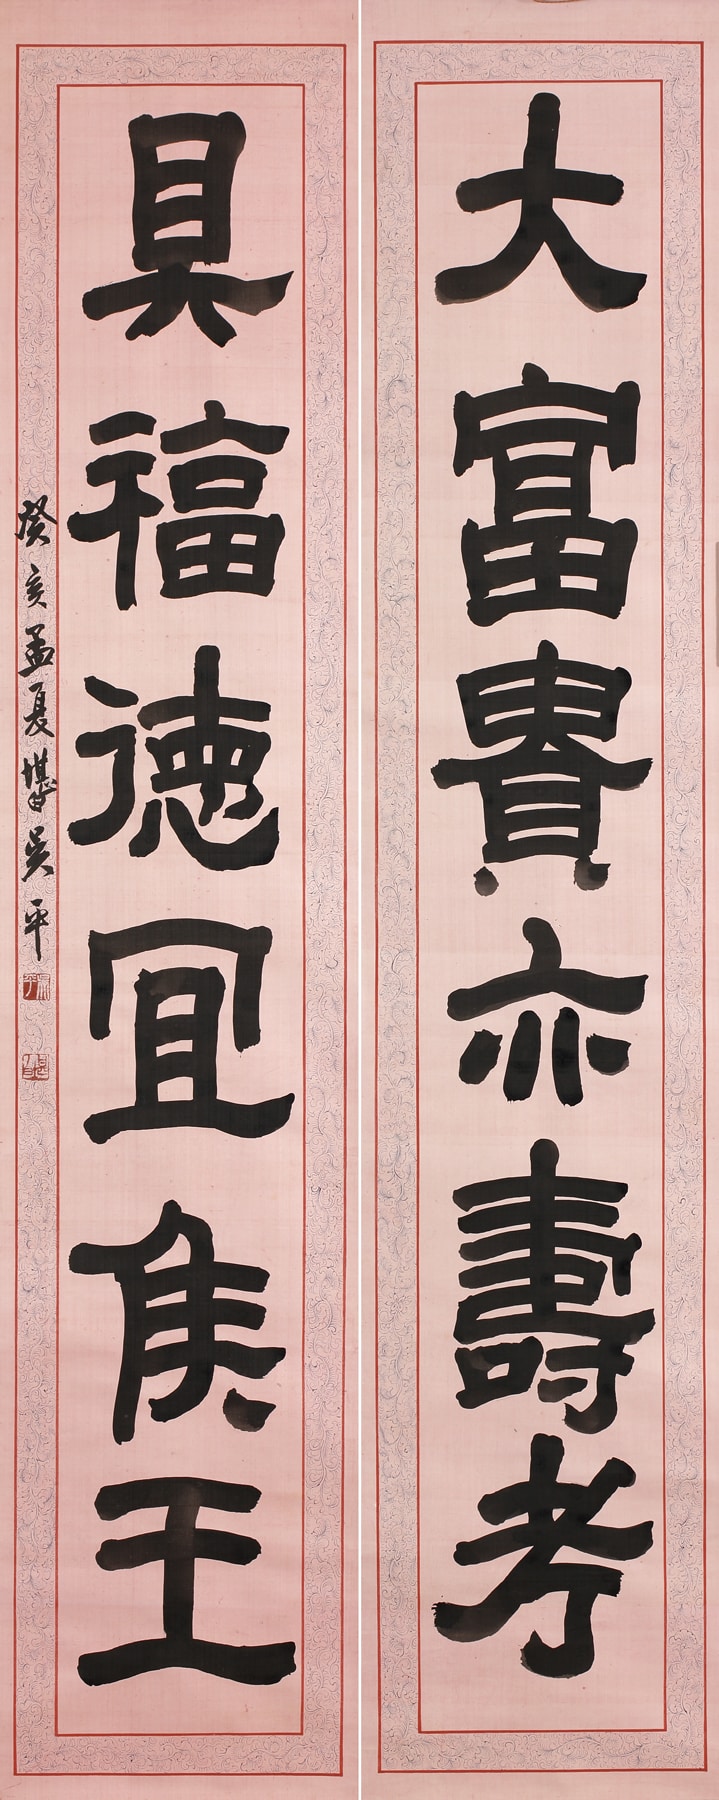 大富貴亦壽考
具福德宜侯王
癸亥孟夏堪白吳平